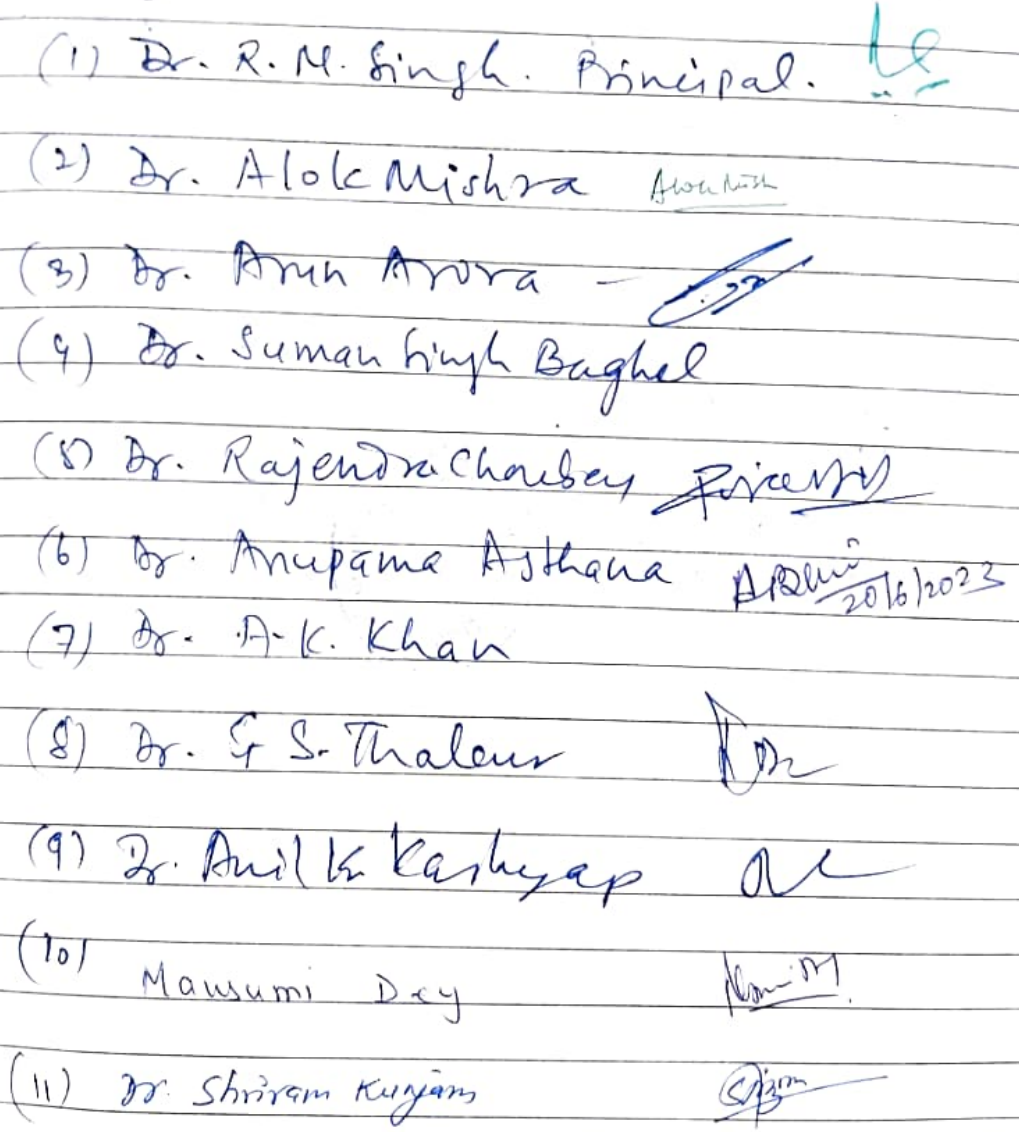 (1) Dr. R. M. Singh. Principal.
(2) Dr. Alok Mishra
(3) Dr. Arun Arora -
(4) Dr. Suman Singh Baghel
(5) Dr. Rajendra Choubey
(6) Dr. Anupama Asthana
20/6/2023
(7) Dr. A. K. Khan
(8) Dr. G S. Thakur
(9) Dr. Anil K Kashyap
(10)
Mausumi Dey
(11) Dr. Shriram Kunjam